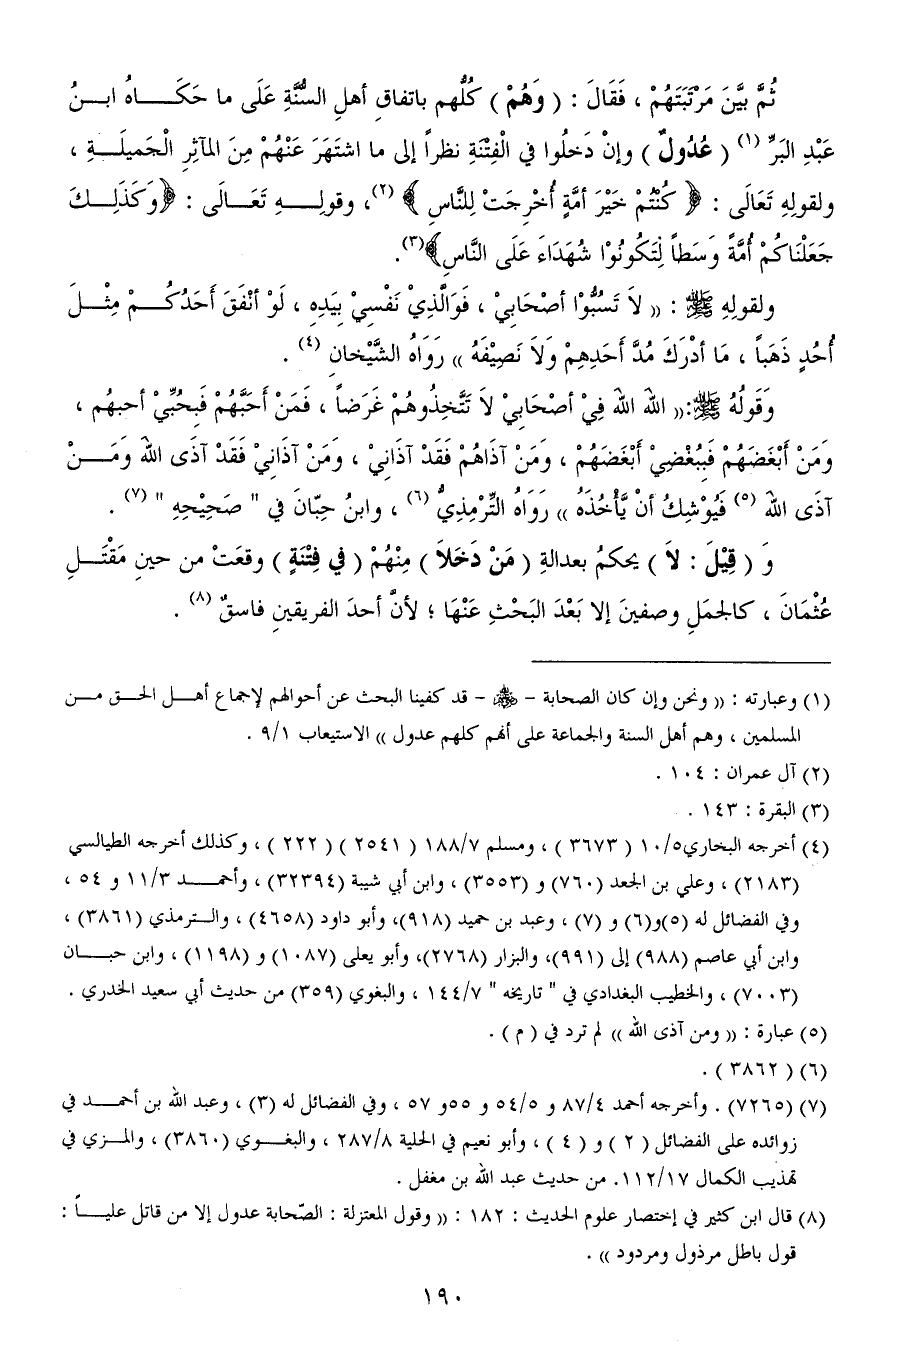 ثُمَّ بيَّنَ مَرْتَبَتَهُمْ ، فَقَالَ : ( وَهُمْ ) كُلُّهم باتفاقِ أهلِ السُّنَّةِ عَلَى ما حَكَاهُ ابنُ
عَبْدِ البَرِّ (١) ( عُدُولٌ ) وإنْ دَخلُوا في الْفِتْنَةِ نظراً إلى ما اشتَهَرَ عَنْهُمْ مِنَ المآثِرِ الْجَميلَةِ ،
ولقولِهِ تَعَالَى : ﴿ كُنْتُمْ خَيْرَ أمَّةٍ أُخْرِجَتْ لِلنَّاسِ ﴾ (٢)، وقولِهِ تَعَالَى : ﴿وَكَذَلِكَ
جَعَلْنَاكُمْ أُمَّةً وَسَطاً لِتَكُونُوْا شُهَدَاءَ عَلَى النَّاسِ﴾(٣).
ولقولِهِ ﷺ : (( لاَ تَسُبُّوْا أصْحَابِيْ ، فَوَالَّذِيْ نَفْسِيْ بيَدِهِ ، لَوْ أنْفَقَ أَحَدُكُمْ مِثْلَ
أُحُدٍ ذَهَباً ، مَا أدْرَكَ مُدَّ أَحَدِهِمْ وَلاَ نَصِيْفَهُ )) رَوَاهُ الشَّيْخَانِ (٤) .
وَقَولُهُ ﷺ:(( اللهَ اللهَ فِيْ أصْحَابِيْ لاَ تَتَّخِذُوهُمْ غَرَضاً ، فَمَنْ أَحَبَّهُمْ فَبِحُبِّيْ أحبهم ،
وَمَنْ أَبْغَضَهُمْ فَبِبُغْضِيْ أَبْغَضَهُمْ ، ومَنْ آذَاهُم فَقَدْ آذَانِيْ ، ومَنْ آذَانِيْ فَقَدْ آذَى اللهَ ومَنْ
آذَى اللهَ (٥) فَيُوْشِكُ أنْ يَأْخُذَهُ )) رَوَاهُ التِّرْمِذِيُّ (٦) ، وابنُ حِبَّانَ في " صَحِيْحِهِ " (٧) .
وَ ( قِيْلَ : لاَ ) يحكمُ بعدالةِ ( مَنْ دَخَلاَ ) مِنْهُمْ ( في فِتْنَةٍ ) وقعَتْ من حينِ مَقْتَلِ
عُثْمَانَ ، كالجملِ وصفينَ إلا بَعْدَ البَحْثِ عَنْهَا ؛ لأنَّ أحدَ الفريقينِ فاسقٌ (٨) .
(١) وعبارته : (( ونحن وإن كان الصحابة - ﷺ - قد كفينا البحث عن أحوالهم لإجماع أهل الحق من
المسلمين ، وهم أهل السنة والجماعة على أنهم كلهم عدول )) الاستيعاب ٩/١ .
(٢) آل عمران : ١٠٤ .
(٣) البقرة : ١٤٣ .
(٤) أخرجه البخاري١٠/٥ ( ٣٦٧٣ ) ، ومسلم ١٨٨/٧ ( ٢٥٤١ ) ( ٢٢٢ ) ، وكذلك أخرجه الطيالسي
(٢١٨٣) ، وعلي بن الجعد (٧٦٠) و (٣٥٥٣) ، وابن أبي شيبة (٣٢٣٩٤) ، وأحمد ١١/٣ و ٥٤ ،
وفي الفضائل له (٥)و(٦) و (٧) ، وعبد بن حميد (٩١٨)، وأبو داود (٤٦٥٨) ، والترمذي (٣٨٦١) ،
وابن أبي عاصم (٩٨٨) إلى (٩٩١)، والبزار (٢٧٦٨)، وأبو يعلى (١٠٨٧) و (١١٩٨) ، وابن حبان
(٧٠٠٣) ، والخطيب البغدادي في " تاريخه " ١٤٤/٧ ، والبغوي (٣٥٩) من حديث أبي سعيد الخدري .
(٥) عبارة : (( ومن آذى الله )) لم ترد في ( م ) .
(٦) ( ٣٨٦٢ ) .
(٧) (٧٢٦٥) . وأخرجه أحمد ٨٧/٤ و ٥٤/٥ و ٥٥و ٥٧ ، وفي الفضائل له (٣) ، وعبد الله بن أحمد في
زوائده على الفضائل ( ٢ ) و ( ٤ ) ، وأبو نعيم في الحلية ٢٨٧/٨ ، والبغوي (٣٨٦٠) ، والمزي في
تهذيب الكمال ١١٢/١٧. من حديث عبد الله بن مغفل .
(٨) قال ابن كثير في إختصار علوم الحديث : ١٨٢ : (( وقول المعتزلة : الصّحابة عدول إلا من قاتل علياً :
قول باطل مرذول ومردود )) .
١٩٠